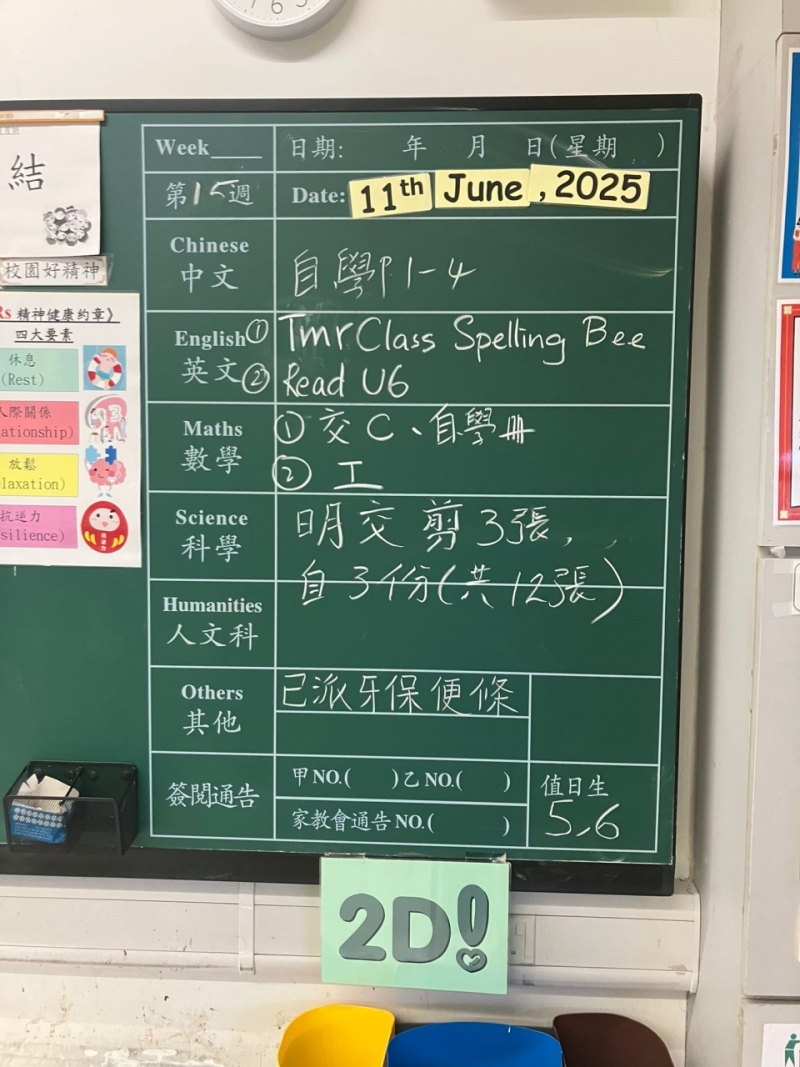 6
結
校園好精神
Rs 精神健康約章》
四大要素
休息
(Rest)
人際關係
ationship)
放鬆
laxation)
抗逆力
silience)
Week____ 日期: 年 月 日(星期 )
第15週 Date: 11th June, 2025
Chinese
中文 自學P1-4
English ① Tmr Class Spelling Bee
英文 ② Read U6
Maths ① 交C、自學冊
數學 ② 工
Science 明交 剪3張,
科學 自3份(共12張)
Humanities
人文科
Others 已派牙保便條
其他
簽閱通告 甲NO.( )乙NO.( ) 值日生
家教會通告NO.( ) 5,6
2D!